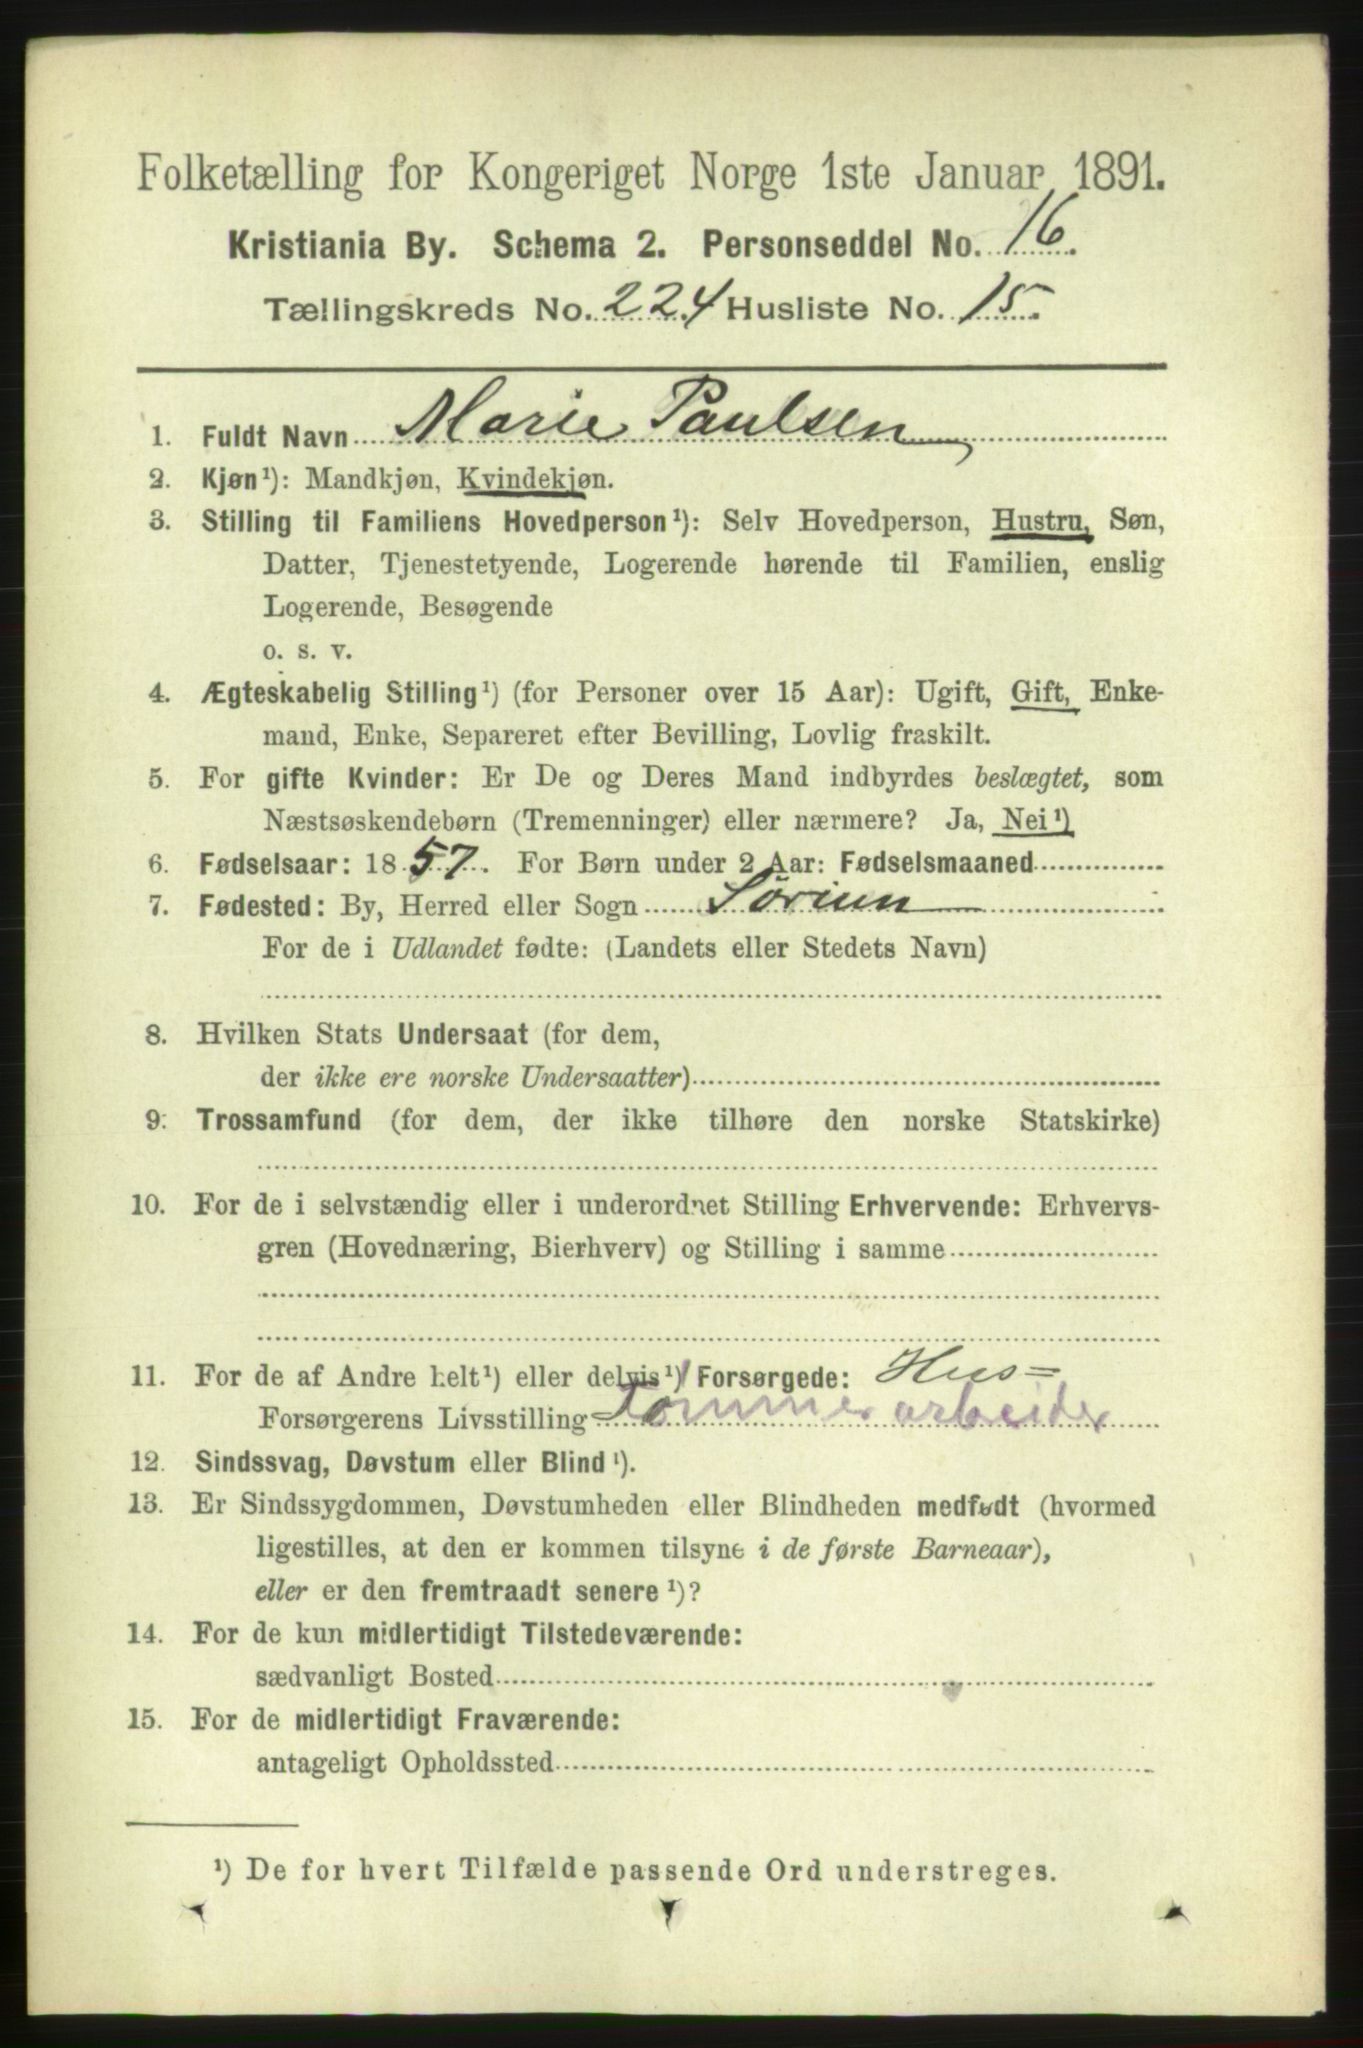 Folketælling for Kongeriget Norge 1ste Januar 1891.
Kristiania By. Schema 2. Personseddel No. 16.
Tællingskreds No. 224 Husliste No. 15.
1. Fuldt Navn Marie Paulsen
2. Kjøn¹): Mandkjøn, Kvindekjøn.
3. Stilling til Familiens Hovedperson¹): Selv Hovedperson, Hustru, Søn,
Datter, Tjenestetyende, Logerende hørende til Familien, enslig
Logerende, Besøgende
o. s. v.
4. Ægteskabelig Stilling¹) (for Personer over 15 Aar): Ugift, Gift, Enke-
mand, Enke, Separeret efter Bevilling, Lovlig fraskilt.
5. For gifte Kvinder: Er De og Deres Mand indbyrdes beslægtet, som
Næstsøskendebørn (Tremenninger) eller nærmere? Ja, Nei¹)
6. Fødselsaar: 1857. For Børn under 2 Aar: Fødselsmaaned
7. Fødested: By, Herred eller Sogn Sørum
For de i Udlandet fødte: (Landets eller Stedets Navn)
8. Hvilken Stats Undersaat (for dem,
der ikke ere norske Undersaatter)
9. Trossamfund (for dem, der ikke tilhøre den norske Statskirke)
10. For de i selvstændig eller i underordnet Stilling Erhvervende: Erhvervs-
gren (Hovednæring, Bierhverv) og Stilling i samme
11. For de af Andre helt¹) eller delvis¹) Forsørgede: Hus=
Forsørgerens Livsstilling Tømmerarbeider
12. Sindssvag, Døvstum eller Blind¹).
13. Er Sindssygdommen, Døvstumheden eller Blindheden medfødt (hvormed
ligestilles, at den er kommen tilsyne i de første Barneaar),
eller er den fremtraadt senere¹)?
14. For de kun midlertidigt Tilstedeværende:
sædvanligt Bosted
15. For de midlertidigt Fraværende:
antageligt Opholdssted
¹) De for hvert Tilfælde passende Ord understreges.